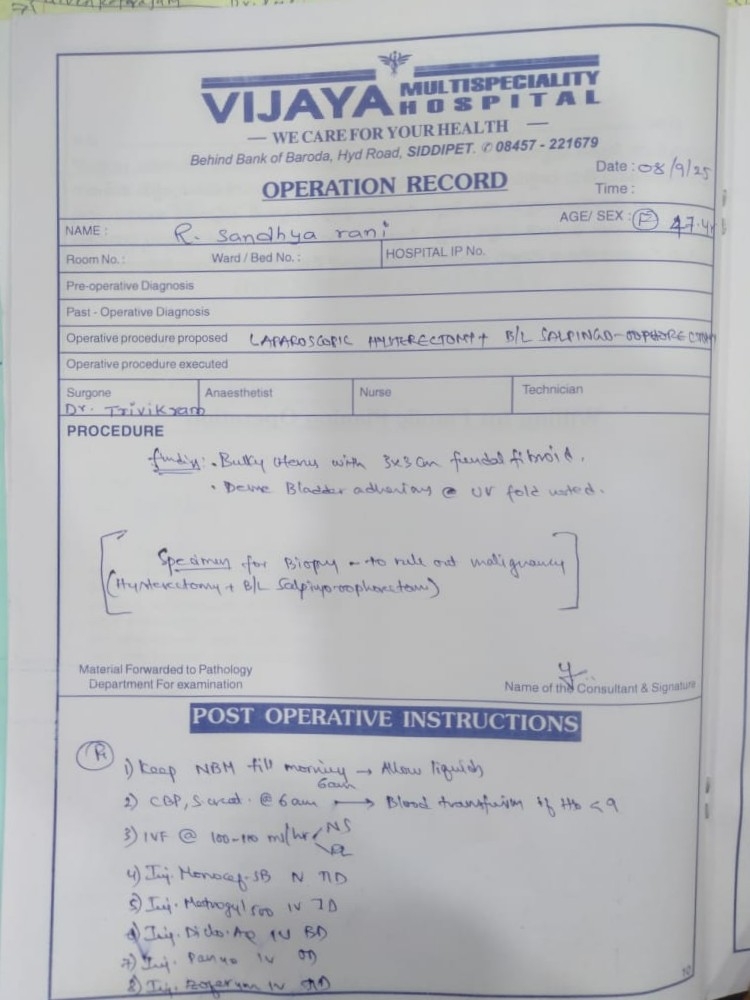 VIJAYA MULTISPECIALITY HOSPITAL
— WE CARE FOR YOUR HEALTH —
Behind Bank of Baroda, Hyd Road, SIDDIPET. ✆ 08457 - 221679
OPERATION RECORD
Date : 08/9/25
Time :
NAME : R. Sandhya rani
AGE/ SEX : F 47 yr
Room No. : Ward / Bed No. : HOSPITAL IP No.
Pre-operative Diagnosis
Past - Operative Diagnosis
Operative procedure proposed LAPAROSCOPIC HYSTERECTOMY + B/L SALPINGO-OOPHORECTOMY
Operative procedure executed
Surgone Anaesthetist Nurse Technician
Dr. Trivikram
PROCEDURE
findings: • Bulky uterus with 3x3 cm fundal fibroid.
• Dense Bladder adhesions @ UV fold noted.
Specimen for Biopsy - to rule out malignancy
(Hysterectomy + B/L Salpingo-oophorectomy)
Material Forwarded to Pathology
Department For examination
Name of the Consultant & Signature
POST OPERATIVE INSTRUCTIONS
1) Keep NBM till morning 6am → Allow liquids
2) CBP, S creat. @ 6am → Blood transfusion if Hb < 9
3) IVF @ ml/hr NS RL
4) Inj. Monocef-SB IV
5) Inj. Metrogyl 500 IV
6) Inj. Diclo-AQ IV BD
7) Inj. IV OD
8) Inj. IV